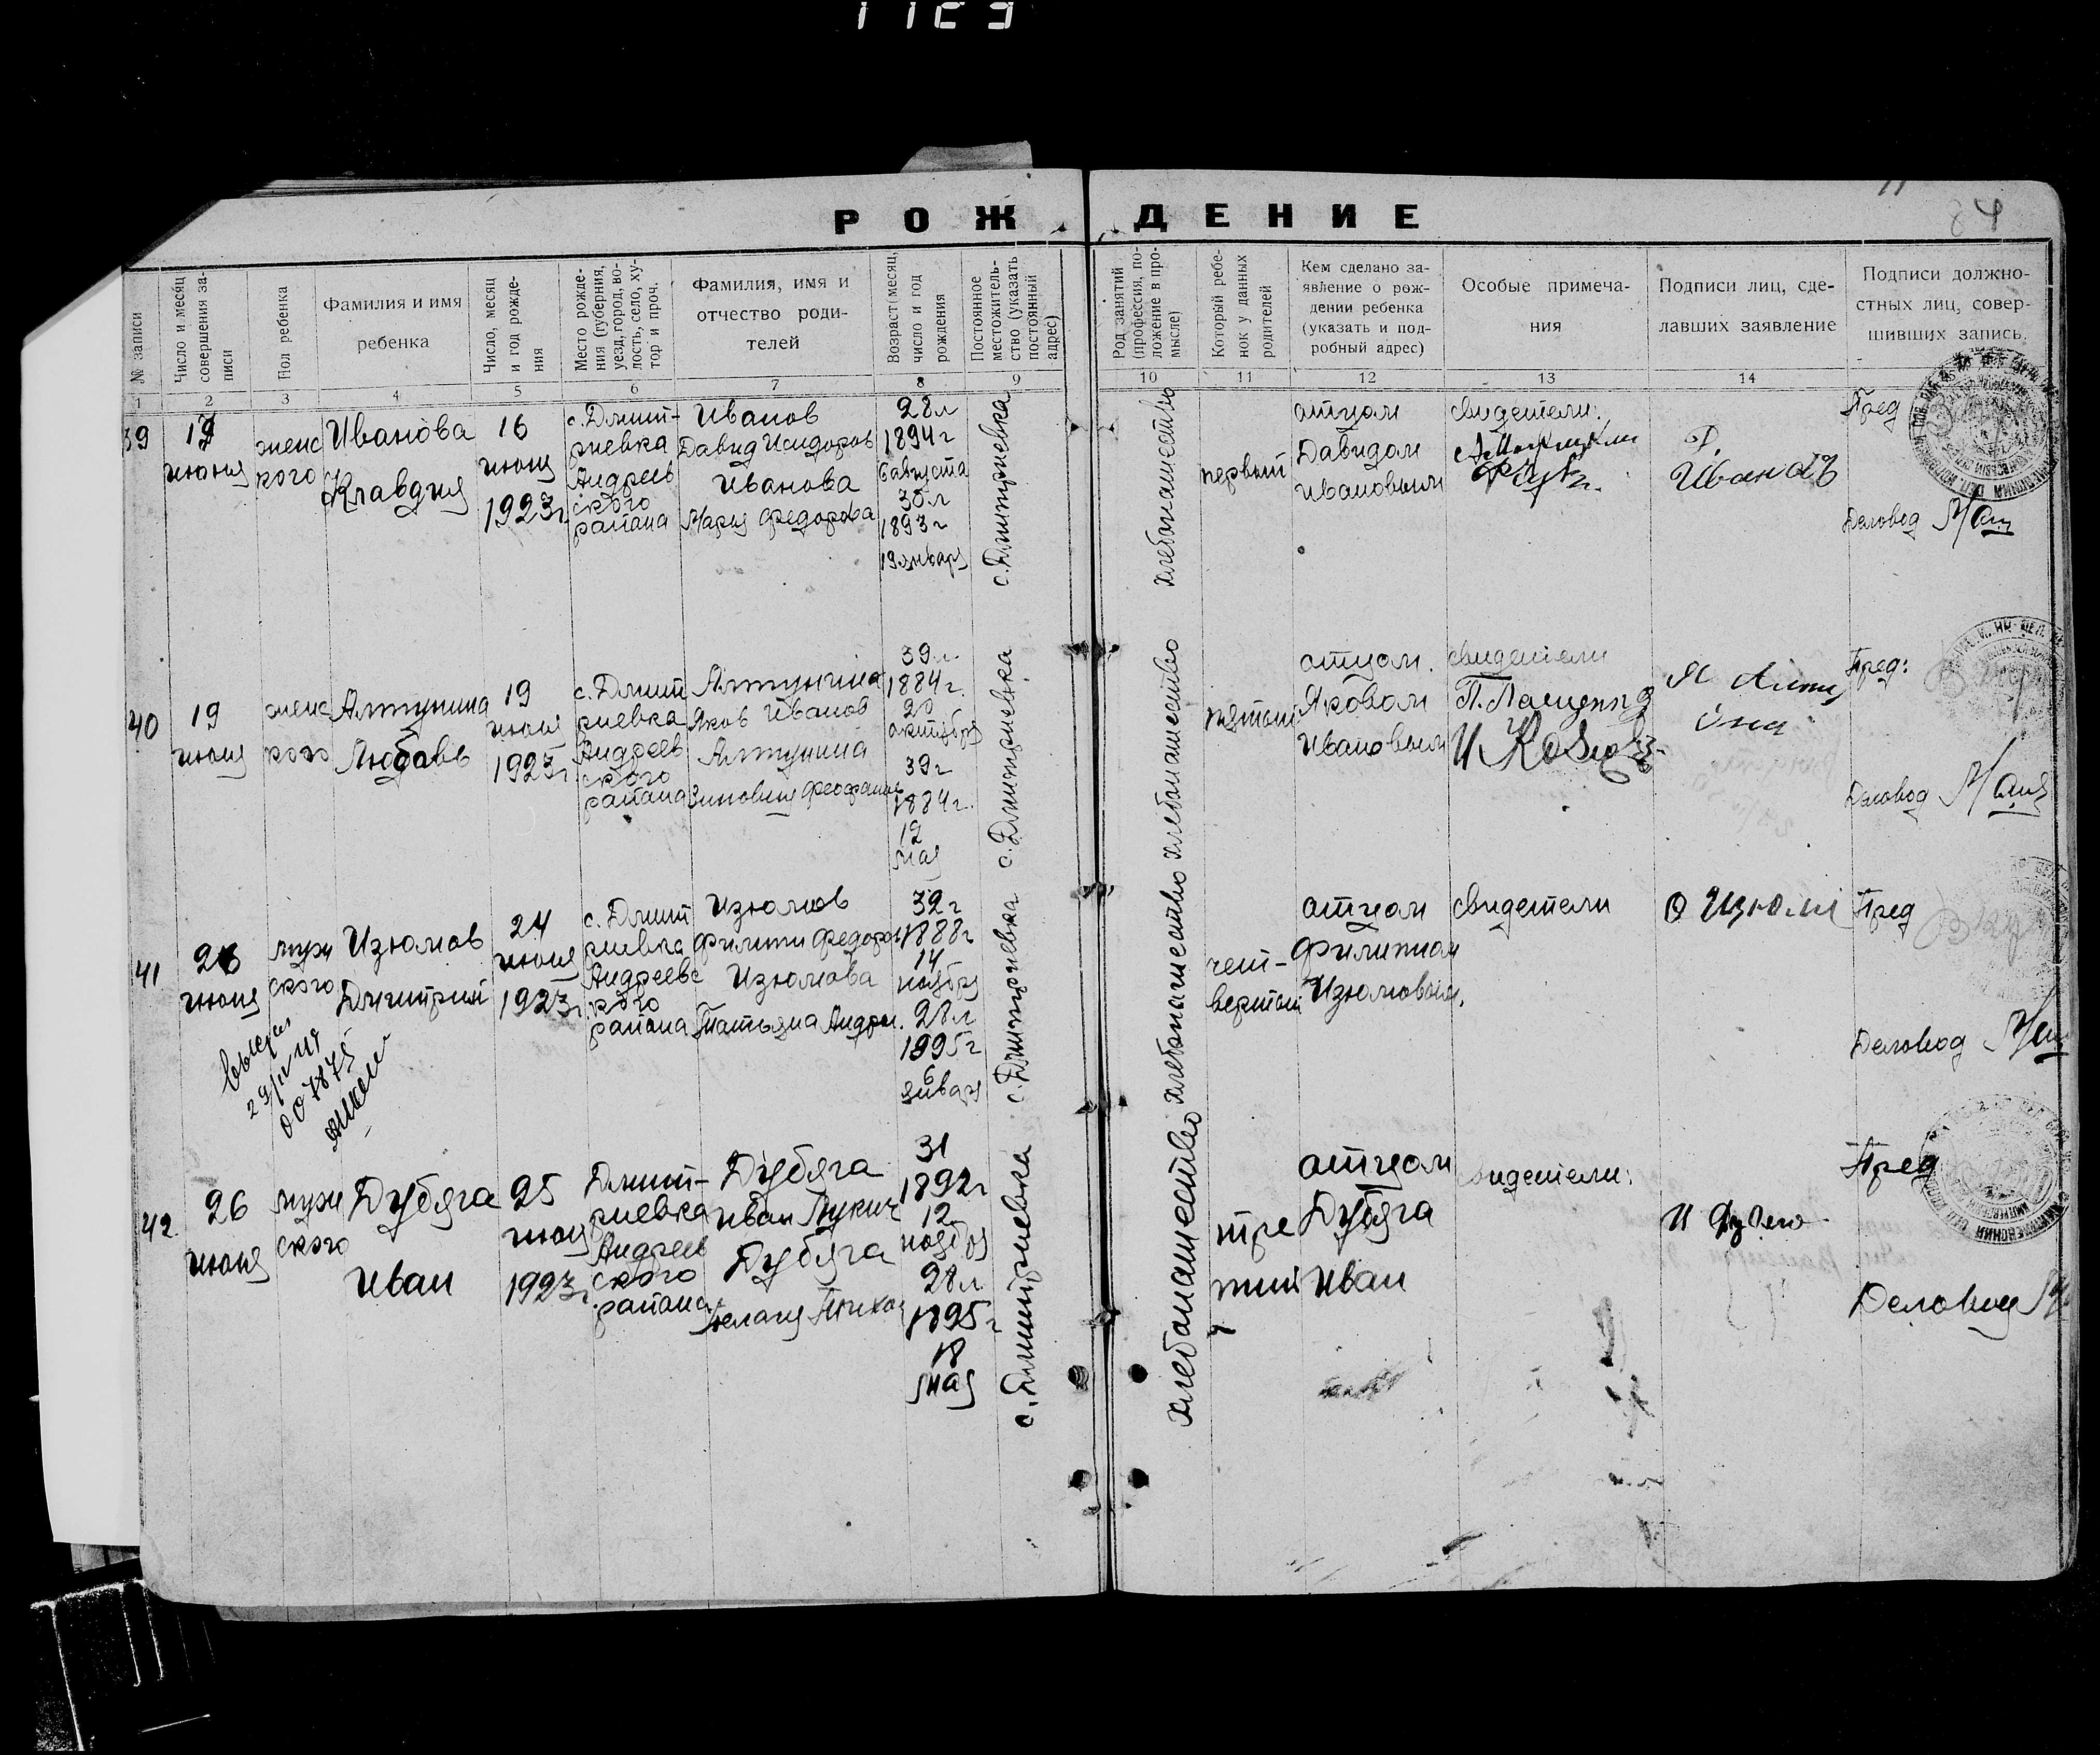 РОЖДЕНИЕ
84
№ записи
Число и месяц совершения за-
писи
Пол ребенка
Фамилия и имя
ребенка
Число, месяц
и год рожде-
ния
Место рожде-
ния (губерния,
уезд, город, во-
лость, село, ху-
тор и проч.
Фамилия, имя и
отчество роди-
телей
Возраст (месяц,
число и год
рождения
Постоянное
местожитель-
ство (указать
постоянный
адрес)
Род занятий
(профессия, по-
ложение в про-
мысле)
Который ребе-
нок у данных
родителей
Кем сделано за-
явление о рож-
дении ребенка
(указать и под-
робный адрес)
Особые примеча-
ния
Подписи лиц, сде-
лавших заявление
Подписи должно-
стных лиц, совер-
шивших запись.
1 2 3 4 5 6 7 8 9 10 11 12 13 14
39
17
июня
женс
кого
Иванова
Клавдия
16
июня
1923г
с. Дмит-
риевка
Андреев
ского
района
Иванов
Давид Исидоров
Иванова
Мария Федорова
28л
1894г
6 августа
30л
1893г
19 января
с. Дмитриевка
хлебопашество
первый
отцом
Давидом
Ивановым
свидетели:
Иванов
Пред
Деловод
40
19
июня
женс
кого
Алтунина
Любовь
19
июня
1923г
с. Дмит
риевка
Андреев
ского
района
Алтунина
Яков Иванов
Алтунина
Зиновия Феофанов
39л
1884г.
20
октября
39г
1884г.
12
мая
с. Дмитриевка
хлебопашество
пятый
отцом.
Яковом
Ивановым
свидетели
Пред:
Деловод
41
26
июня
мужс
ского
Изюмов
Дмитрий
24
июня
1923г
с. Дмит
риевка
Андреевс
кого
района
Изюмов
Филипп Федоров
Изюмова
Татьяна Андре.
32г
1888г
14
ноября
28л
1895г
6
января
с. Дмитриевка
хлебопашество
чет-
вертый
отцом
Филиппом
Изюмовым.
свидетели
Пред
Деловод
42
26
июня
мужс
ского
Дубяга
Иван
25
июня
1923г
Дмит-
риевка
Андреев
ского
района
Дубяга
Иван Лукич
Дубяга
31
1892г
12
ноября
28л
1895г
18
мая
с. Дмитриевка
хлебопашество
тре
тий
отцом
Дубяга
Иван
свидетели:
Пред
Деловод